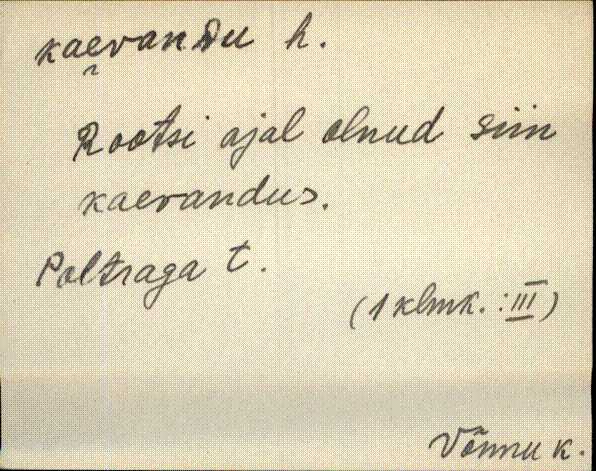 kaevandu h.
Rootsi ajal olnud siin
kaevandus.
Poltsaga t.
(1 klmk. : III)
Võnnu k.